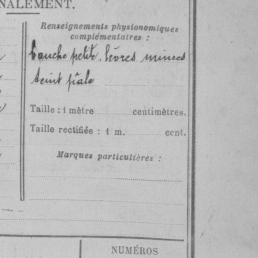 NALEMENT.
Renseignements physionomiques
complémentaires :
bouche petite. lèvres minces
teint pâle
Taille : 1 mètre centimètres.
Taille rectifiée : 1 m. cent.
Marques particulières :
NUMÉROS